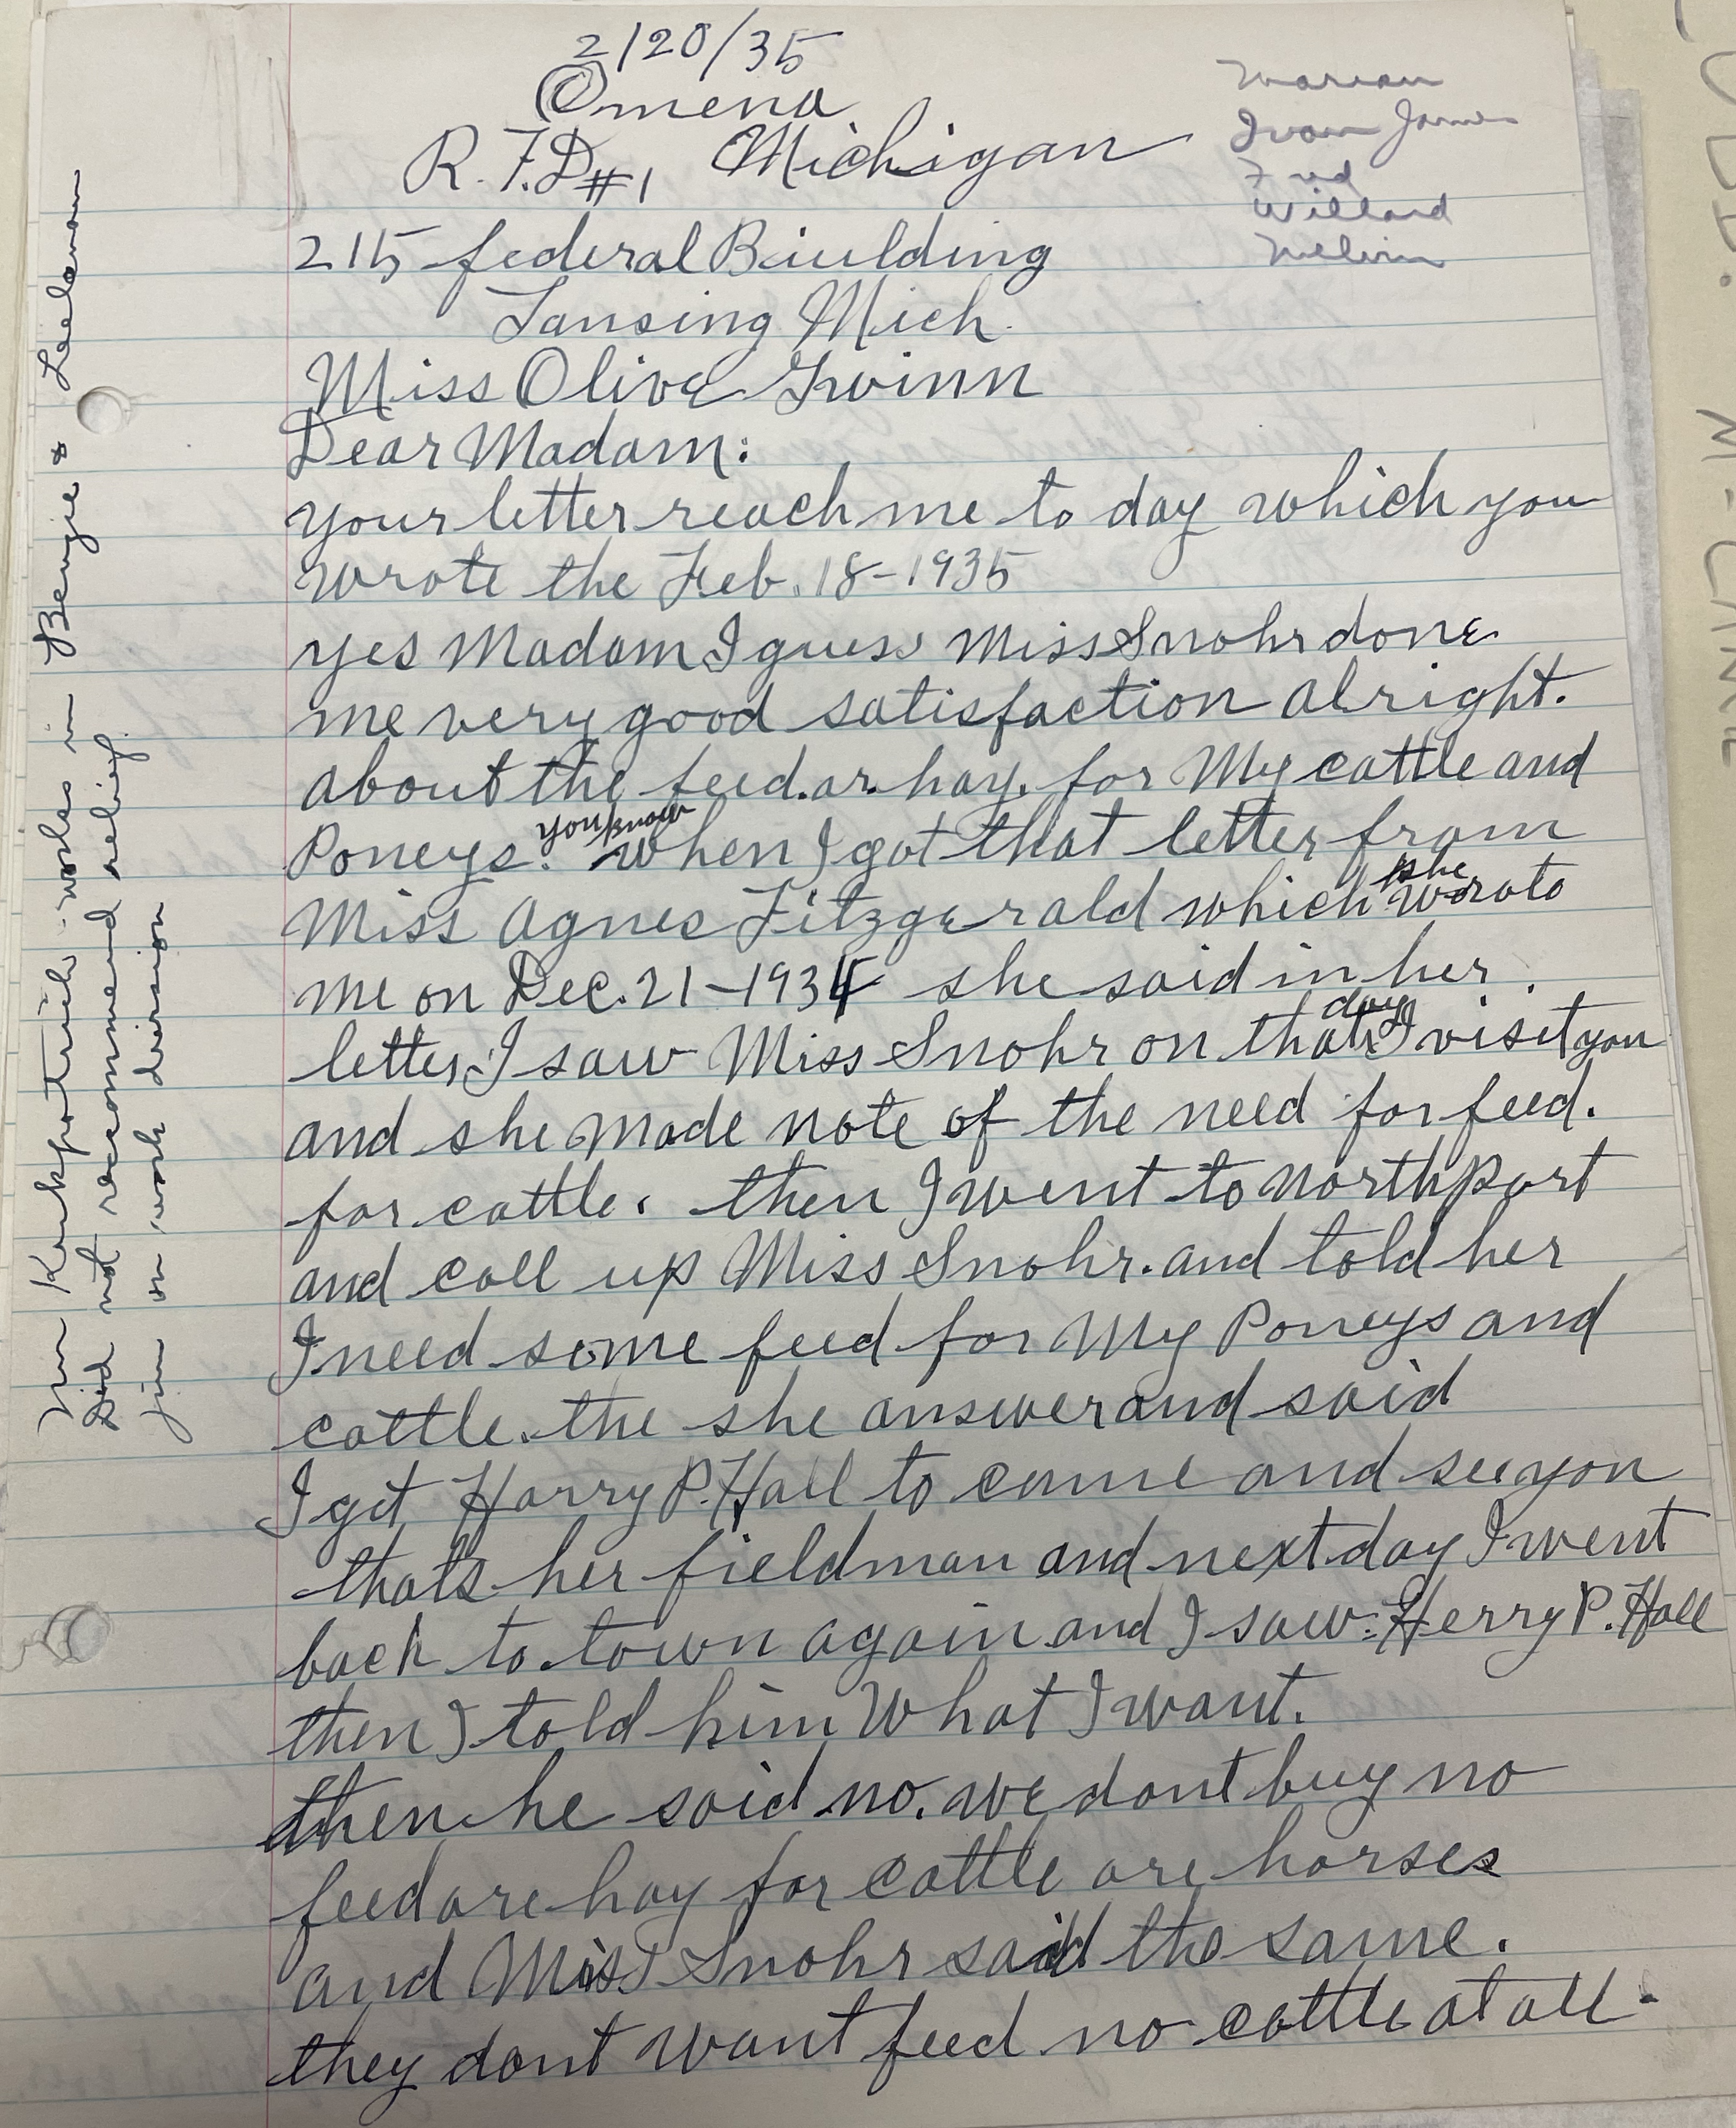 2/20/35
Omena
R.F.D #1 Michigan
Marian
Ivan James
Fred
Willard
Melvin
215 federal Biulding
Lansing Mich.
Miss Olive Gwinn
Dear Madam:
your letter reach me to day which you
wrote the Feb. 18-1935
yes Madam I guess Miss Snohr done
me very good satisfaction alright.
about the feed.ar.hay. for My cattle and
Poneys. you know when I got that letter from
Miss Agnes Fitzgerald which she wrote
me on Dec. 21-1934 she said in her.
letter. I saw Miss Snohr on that day I visit you
and she made note of the need for feed.
for cattle. then I went to Northport
and call up Miss Snohr. and told her
I need some feed for My Poneys and
cattle. the she answer and said
I get Harry P. Hall to come and see you
thats her fieldman and next day I went
back to town again and I saw Herry P. Hall
then I told him What I want.
then he said no. we dont buy no
feed are hay for cattle are horses
and Miss Snohr said the same.
they dont want feed no cattle at all.
works in Benzie & Leelanau
Did not recommend relief.
in work division